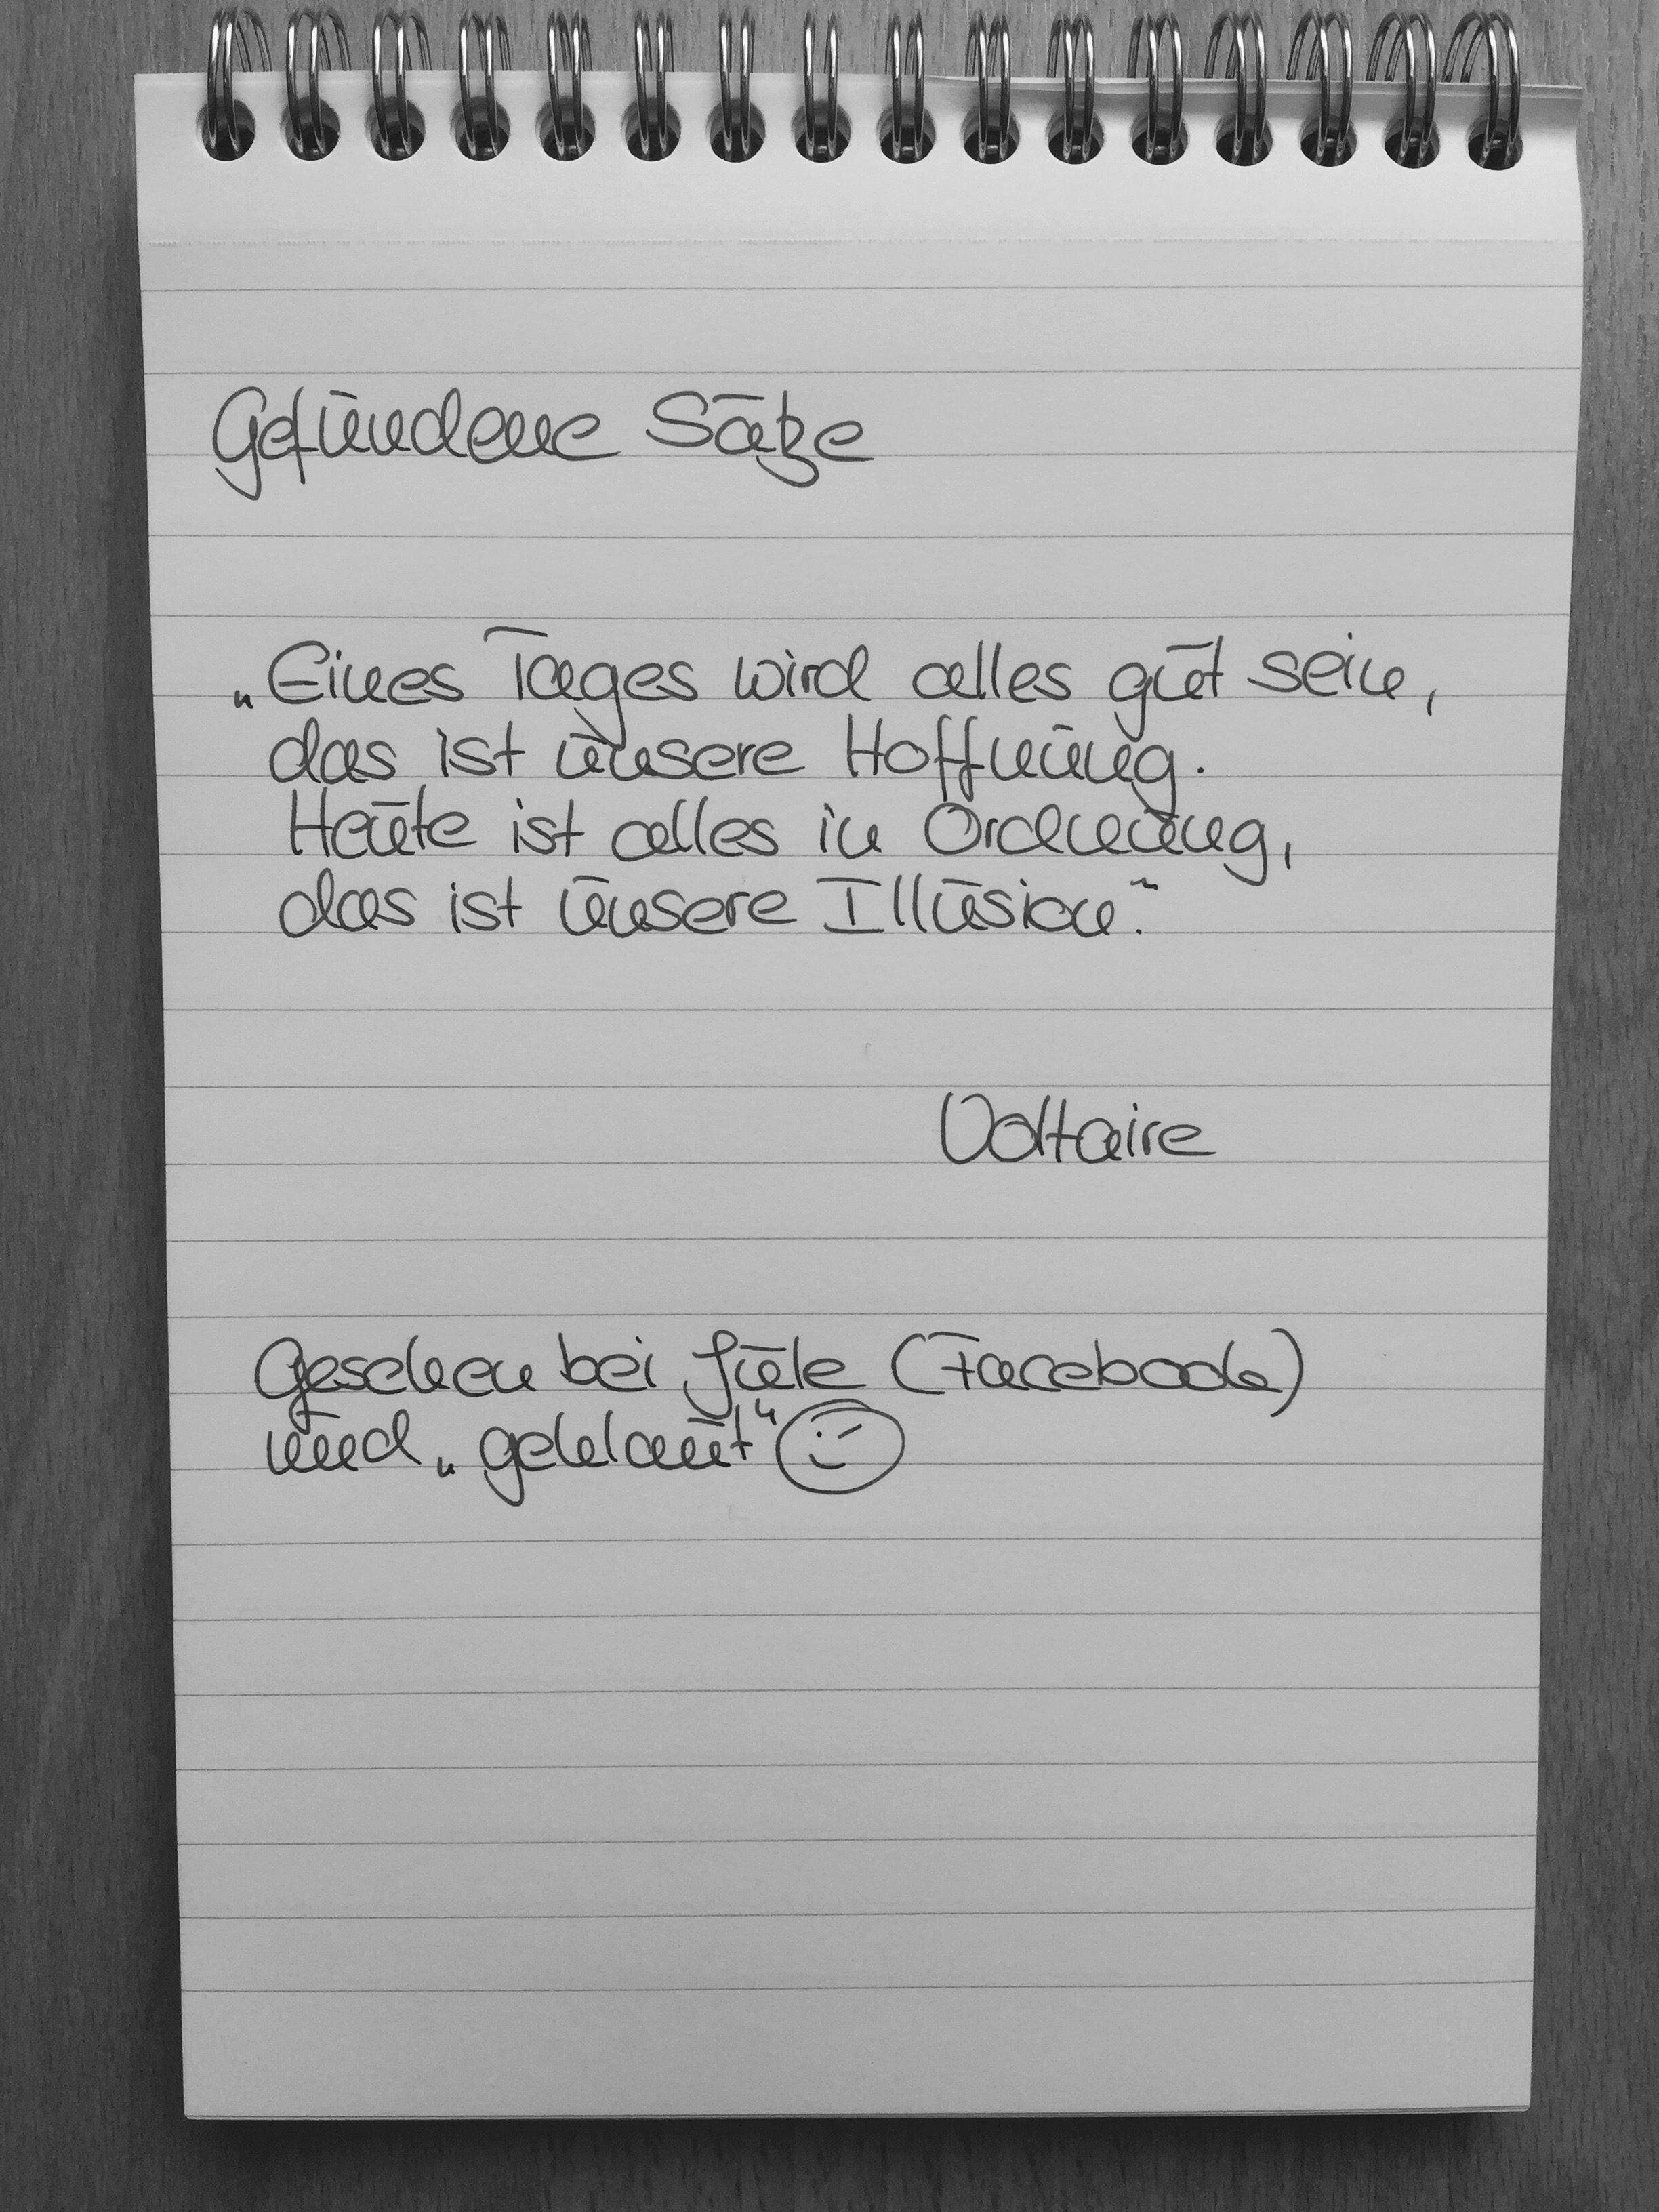 Gefundene Sätze
„Eines Tages wird alles gut sein,
das ist unsere Hoffnung.
Heute ist alles in Ordnung,
das ist unsere Illusion."
Voltaire
Gesehen bei Jule (Facebook)
und „geklaut“